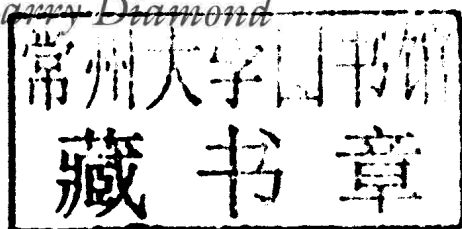 arry Diamond
常州大学图书馆
藏书章